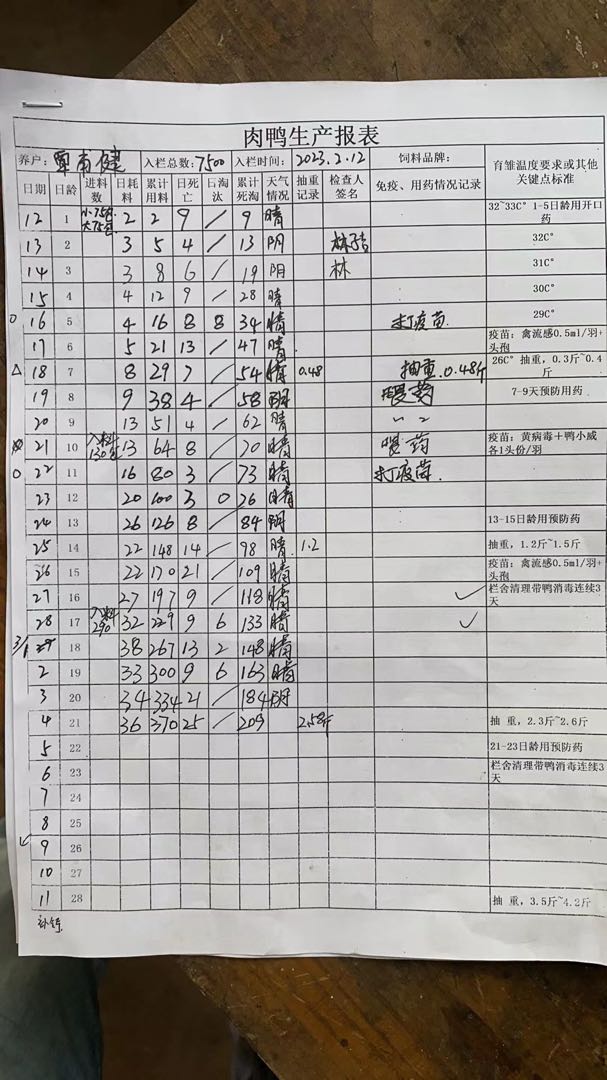 肉鸭生产报表
养户: 覃甫健 入栏总数: 7500 入栏时间: 2023.2.12 饲料品牌: 育雏温度要求或其他关键点标准
日期 日龄 进料数 日耗料 累计用料 日死亡 日淘汰 累计死淘 天气情况 抽重记录 检查人签名 免疫、用药情况记录
12 1 小75包 大75包 2 2 9 / 9 晴 32~33C° 1-5日龄用开口药
13 2 3 5 4 / 13 阴 32C°
14 3 3 8 6 / 19 阳 林 31C°
15 4 4 12 9 / 28 晴 30C°
16 5 4 16 8 8 34 晴 打疫苗 29C°
17 6 5 21 13 / 47 晴 疫苗: 禽流感0.5ml/羽+头孢
18 7 8 29 7 / 54 晴 0.48 抽重0.48斤 26C° 抽重, 0.3斤~0.4斤
19 8 9 38 4 / 58 阴 喂药 7-9天预防用药
20 9 13 51 4 / 62 晴
21 10 入料 130包 13 64 8 / 70 晴 喂药 疫苗: 黄病毒+鸭小威各1头份/羽
22 11 16 80 3 / 73 晴 打疫苗.
23 12 20 100 3 0 76 晴
24 13 26 126 8 / 84 阴 13-15日龄用预防药
25 14 22 148 14 / 98 晴 1.2 抽重, 1.2斤~1.5斤
26 15 22 170 21 / 109 晴 疫苗: 禽流感0.5ml/羽+头孢
27 16 27 197 9 / 118 晴 栏舍清理带鸭消毒连续3天
28 17 入料 290 32 229 9 6 133 晴
3/1 18 38 267 13 2 148 晴
2 19 33 300 9 6 163 晴
3 20 34 334 21 / 184 阴
4 21 36 370 25 / 209 2.58斤 抽 重, 2.3斤~2.6斤
5 22 21-23日龄用预防药
6 23 栏舍清理带鸭消毒连续3天
7 24
8 25
9 26
10 27
11 28 抽 重, 3.5斤~4.2斤